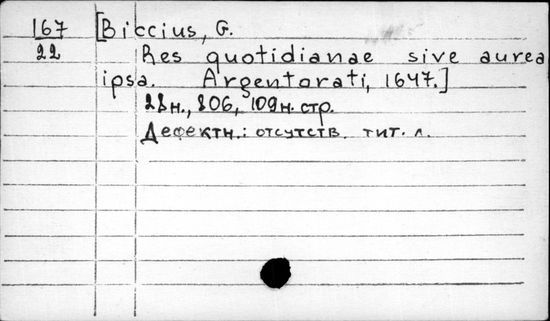 167 [Biccius, G.
22 Res quotidianae sive aurea
ipsa. Argentorati, 1647.]
28н., 806, 109н. стр.
Дефектн.: отсутств. тит. л.